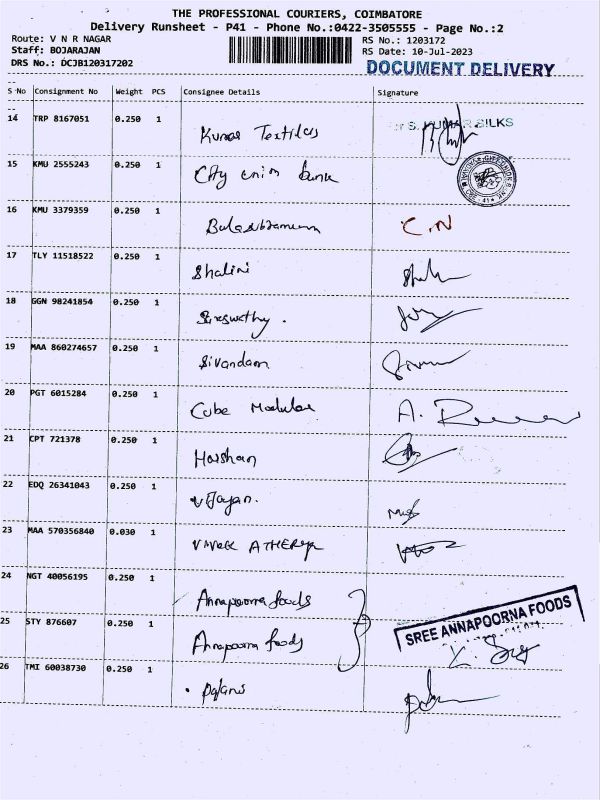 THE PROFESSIONAL COURIERS, COIMBATORE
Delivery Runsheet - P41 - Phone No.:0422-3505555 - Page No.:2
Route: V N R NAGAR RS No.: 1203172
Staff: BOJARAJAN RS Date: 10-Jul-2023
DRS No.: DCJB120317202 DOCUMENT DELIVERY
S No Consignment No Weight PCS Consignee Details Signature
14 TRP 8167051 0.250 1 Kumar Textiles SILKS
15 KMU 2555243 0.250 1 City union bank
16 KMU 3379359 0.250 1 C.N
17 TLY 11518522 0.250 1 Shalini
18 GGN 98241854 0.250 1
19 MAA 860274657 0.250 1 Sivandam
20 PGT 6015284 0.250 1 Cube Modular A.
21 CPT 721378 0.250 1 Harshan
22 EDQ 26341043 0.250 1 Vijayan.
23 MAA 570356840 0.030 1
24 NGT 40056195 0.250 1 Annapoorna foods
25 STY 876607 0.250 1 Annapoorna foods SREE ANNAPOORNA FOODS
26 TMI 60038730 0.250 1